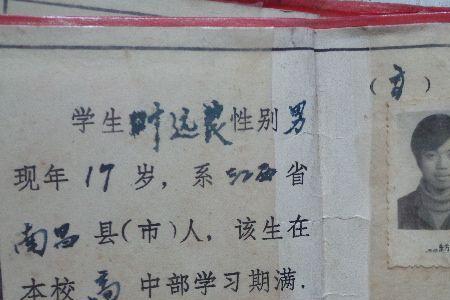 (高)
学生叶远良性别男
现年17岁，系江西省
南昌县(市)人，该生在
本校高中部学习期满.